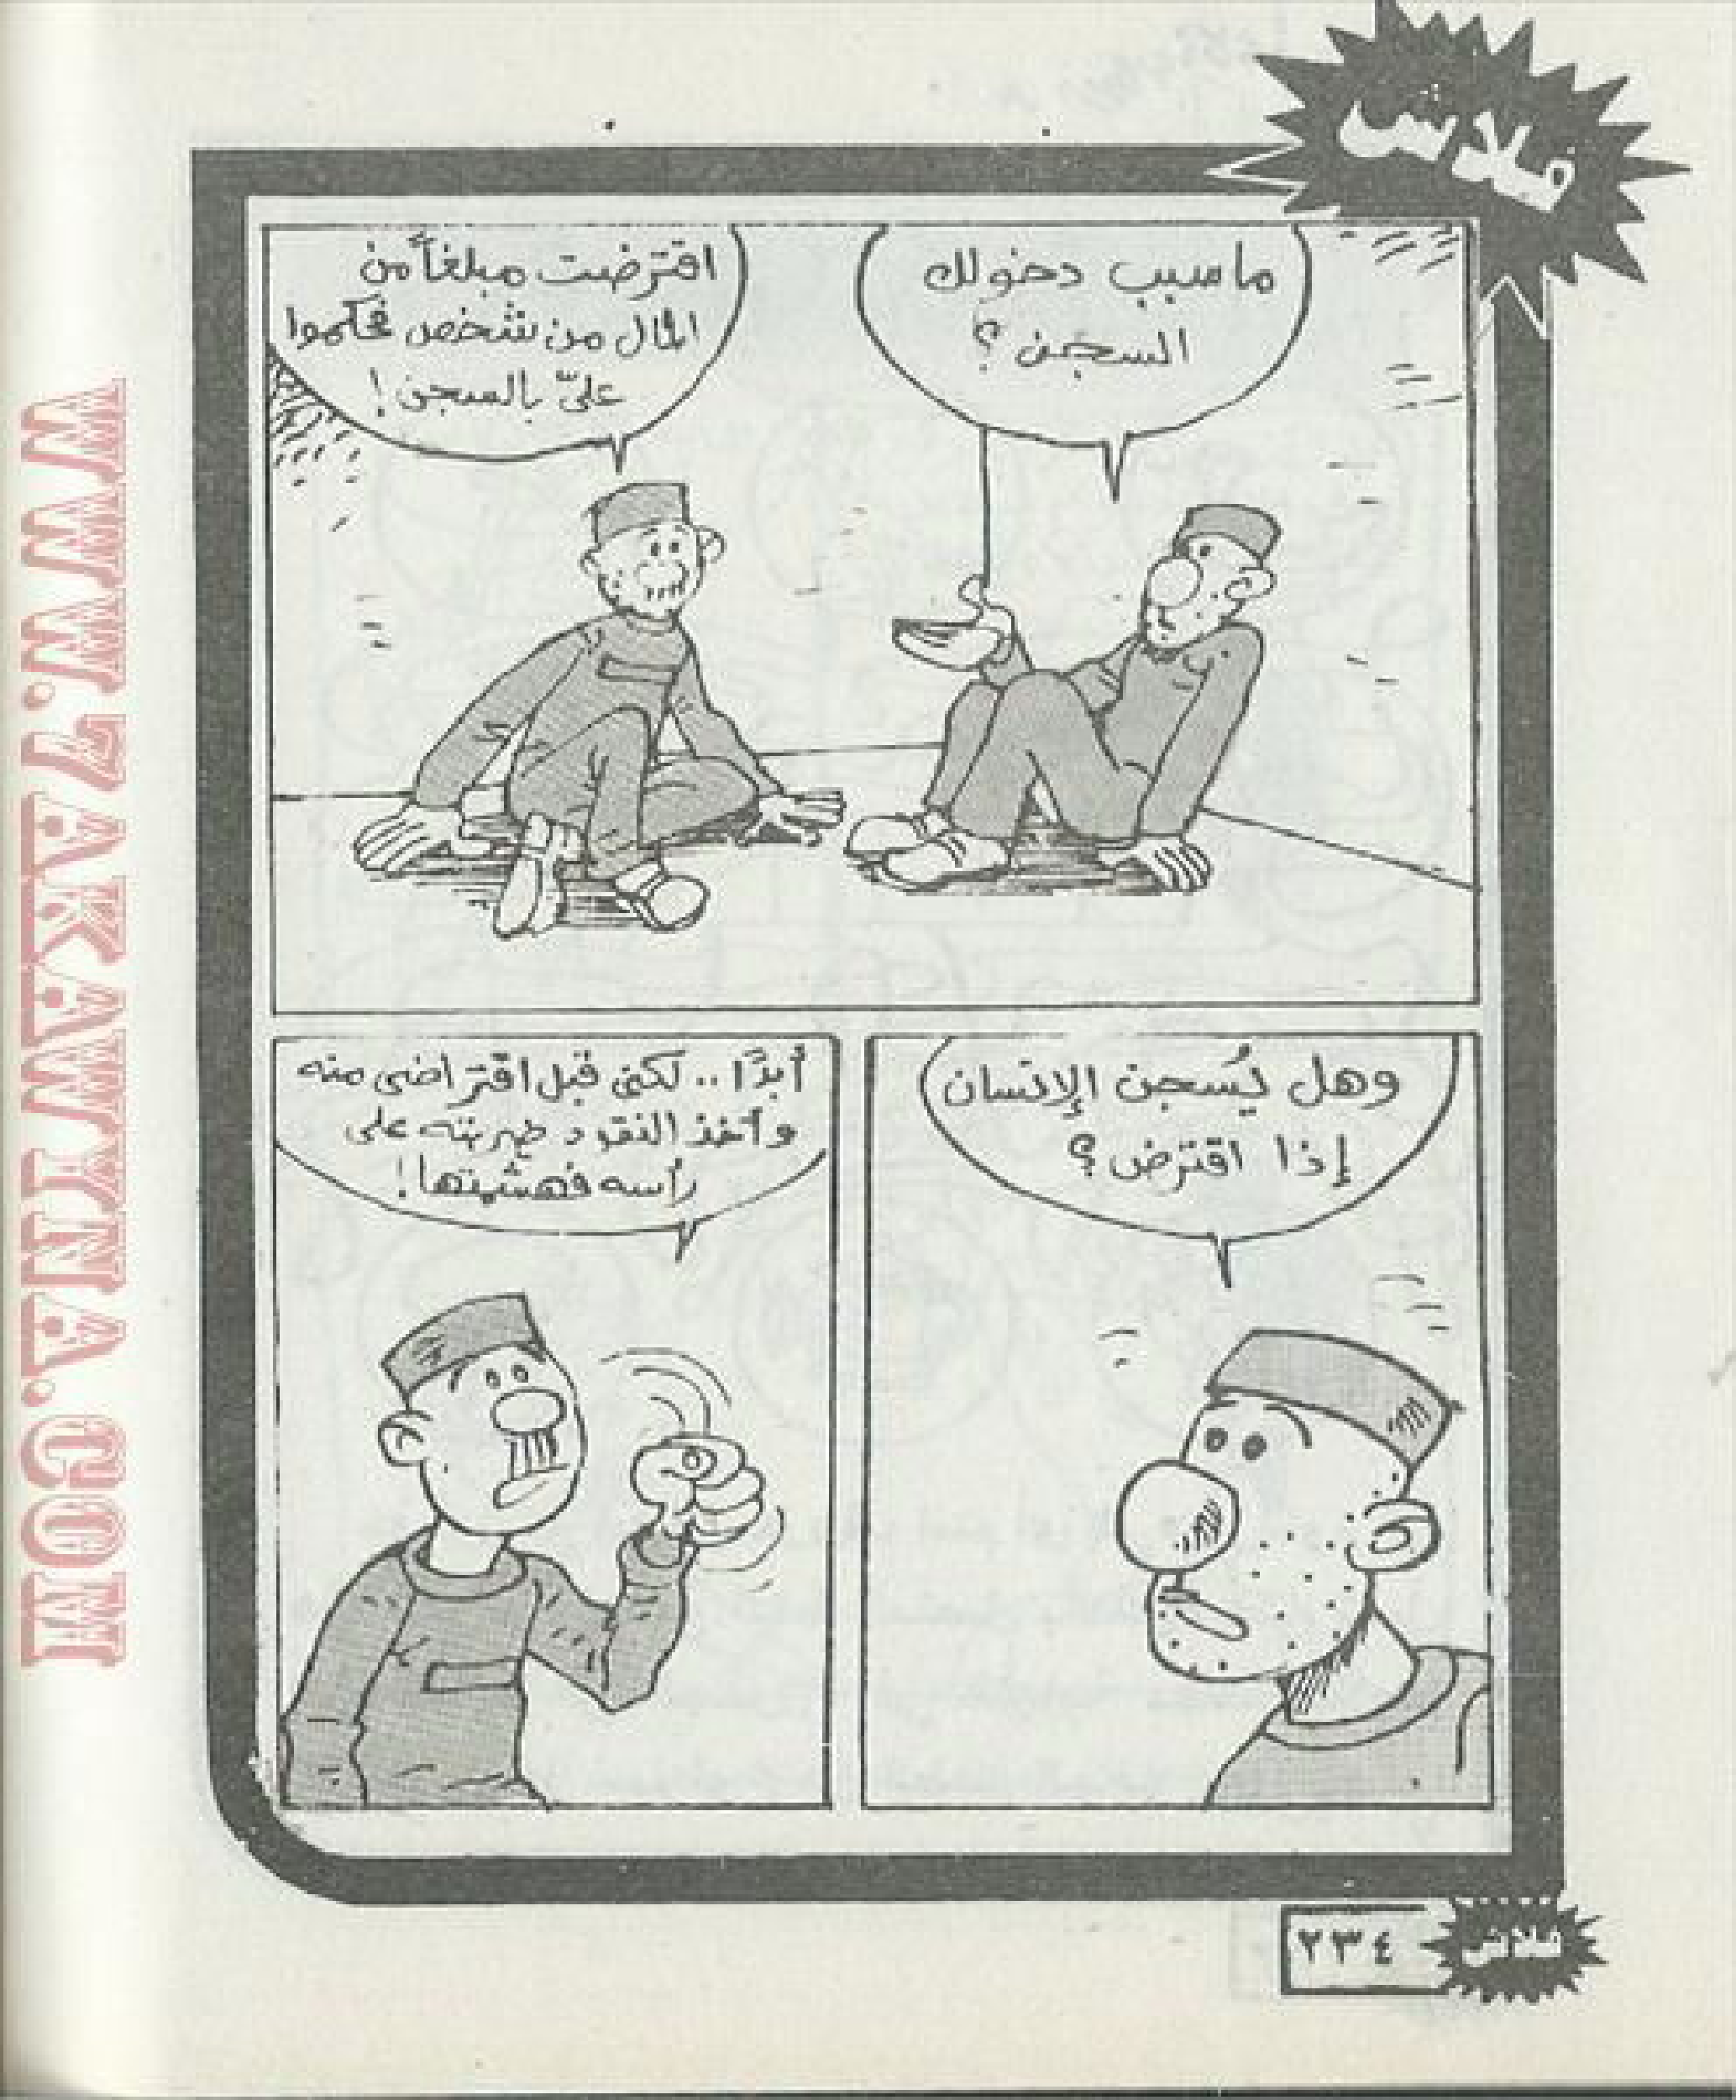 فلاش
ما سبب دخولك
السجن؟
اقترضت مبلغاً من
المال من شخص فحكموا
عليّ بالسجن!
وهل يُسجن الإنسان
إذا اقترض؟
أبدًا.. لكنى قبل اقتراضى منه
وأخذ النقود ضربته على
رأسه فهشمتها!
فلاش
٢٣٤
WWW.ZAKAWTNA.COM